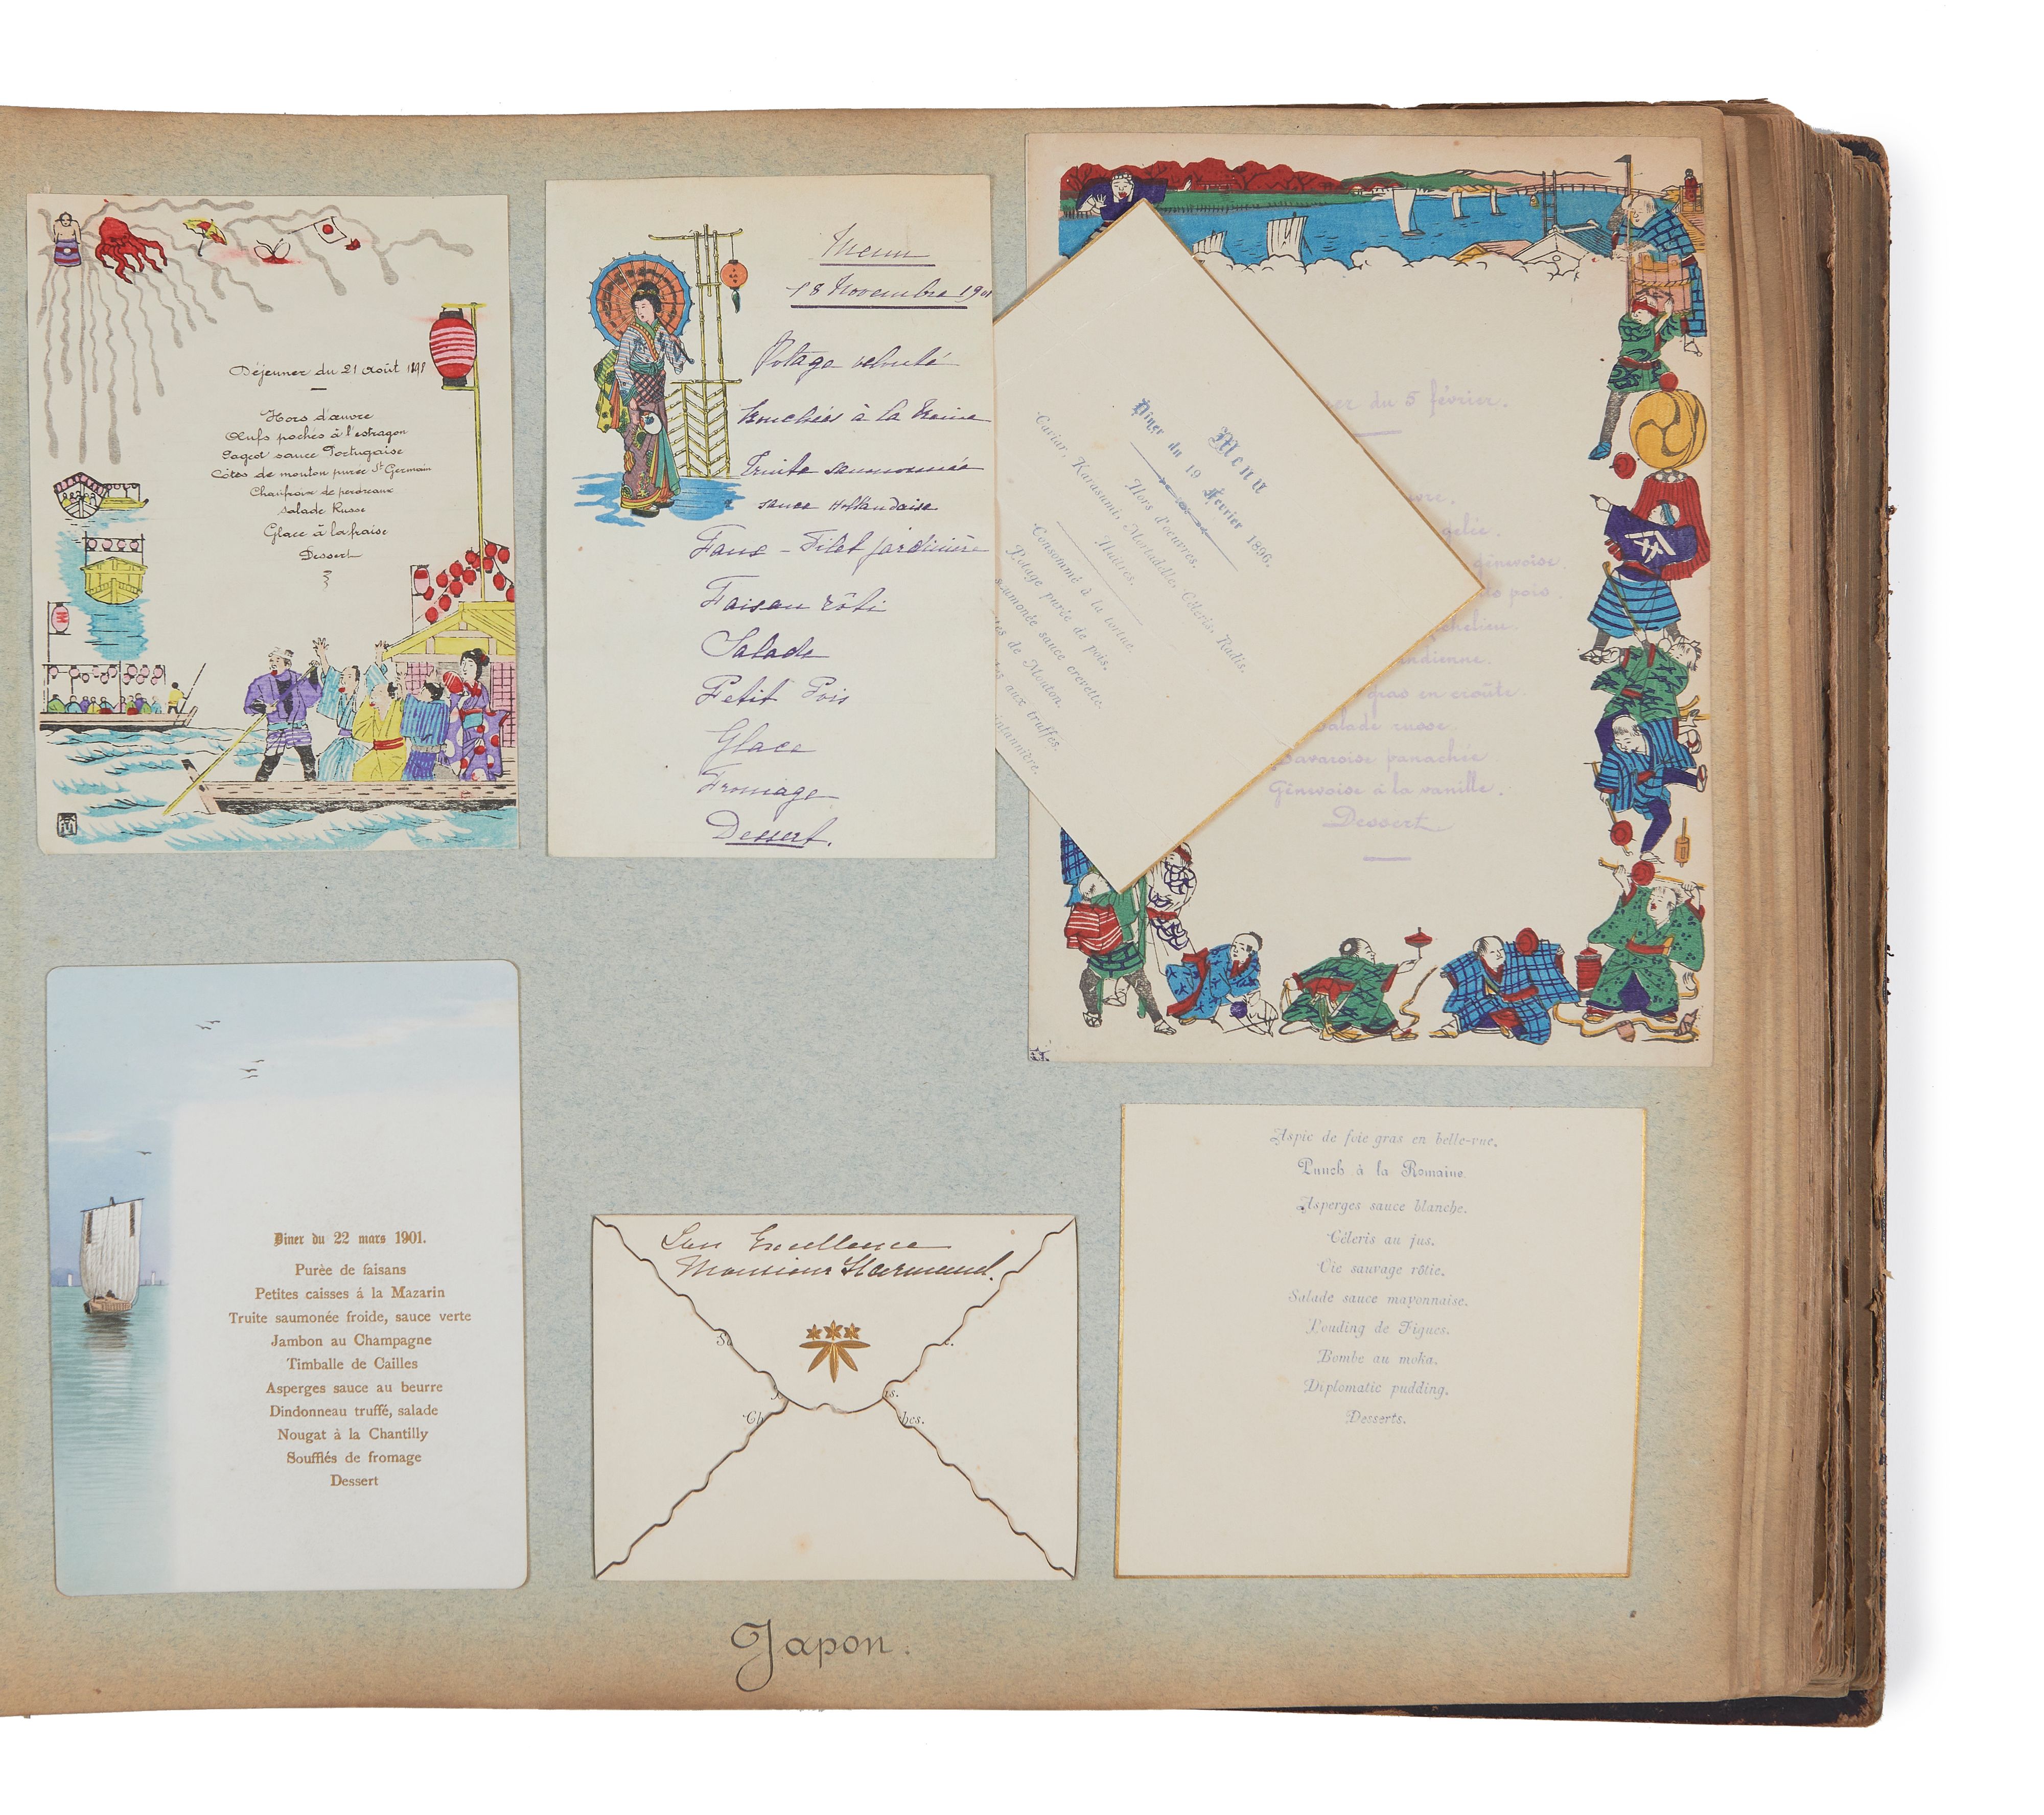 Déjeuner du 21 août 1898
Hors d'œuvre
Œufs pochés à l'estragon
sauce Portugaise
Côtes de mouton purée St Germain
Chaufroix de perdreaux
Salade Russe
Glace à la fraise
Dessert
Menu
18 Novembre 1901
Potage velouté
Bouchées à la Reine
Truite saumonnée
sauce Hollandaise
Faux-Filet jardinière
Faisan rôti
Salade
Petit Pois
Glace
Fromage
Dessert.
Menu
Diner du 19 Février 1896.
Hors d'oeuvres.
Caviar, Karasumi, Mortadelle, Céleris, Radis.
Huîtres.
Consommé à la tortue.
Potage purée de pois.
saumonée sauce crevette.
de Mouton.
aux truffes.
du 5 février.
gelée.
génevoise.
pois.
gras en croûte
salade russe.
Bavaroise panachée
Génevoise à la vanille.
Dessert
Diner du 22 mars 1901.
Purèe de faisans
Petites caisses á la Mazarin
Truite saumonée froide, sauce verte
Jambon au Champagne
Timballe de Cailles
Asperges sauce au beurre
Dindonneau truffé, salade
Nougat à la Chantilly
Soufflés de fromage
Dessert
Son Excellence
Monsieur Harmand.
Aspic de foie gras en belle-vue.
Punch à la Romaine.
Asperges sauce blanche.
Céleris au jus.
Oie sauvage rôtie.
Salade sauce mayonnaise.
Pouding de Figues.
Bombe au moka.
Diplomatic pudding.
Desserts.
Japon.